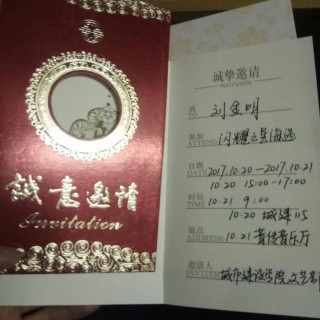 誠意邀请
Invitation
诚挚邀请
INVITATION
致
TO 刘金明
参加
ATTEND 闪耀之星海选
日期
DATE 2017.10.20—2017.10.21
10.20 15:00-17:00
时间
TIME 10.21 9:00
10.20 城建115
地点
ADDRESS 10.21 青传音乐厅
邀请人
INVITER 城市建设学院文艺部